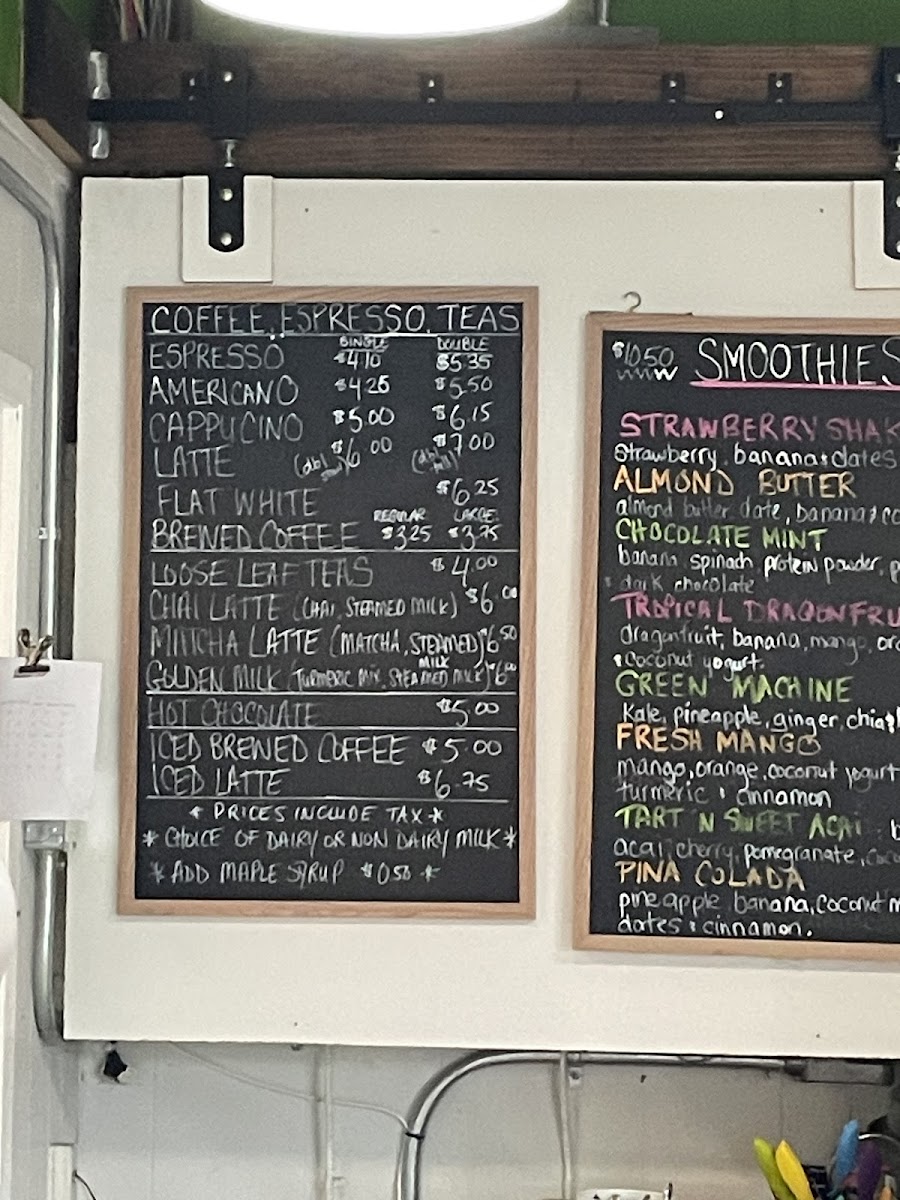 COFFEE, ESPRESSO, TEAS
SINGLE DOUBLE
ESPRESSO $4.10 $5.35
AMERICANO $4.25 $5.50
CAPPUCINO $5.00 $6.15
LATTE (dbl) $6.00 (dbl) $7.00
FLAT WHITE $6.25
REGULAR LARGE
BREWED COFFEE $3.25 $3.75
LOOSE LEAF TEAS $4.00
CHAI LATTE (CHAI, STEAMED MILK) $6.00
MATCHA LATTE (MATCHA, STEAMED MILK) $6.50
GOLDEN MILK (TURMERIC MIX, STEAMED MILK) $6.00
HOT CHOCOLATE $5.00
ICED BREWED COFFEE $5.00
ICED LATTE $6.75
* PRICES INCLUDE TAX *
* CHOICE OF DAIRY OR NON DAIRY MILK *
* ADD MAPLE SYRUP $0.50 *
$10.50 SMOOTHIES
STRAWBERRY SHAK
Strawberry, banana & dates
ALMOND BUTTER
almond butter, date, banana & co
CHOCOLATE MINT
banana, spinach, protein powder, p
& dark chocolate
TROPICAL DRAGONFRU
dragonfruit, banana, mango, ora
& coconut yogurt.
GREEN MACHINE
Kale, pineapple, ginger, chia &
FRESH MANGO
mango, orange, coconut yogurt
turmeric & cinnamon
TART N SWEET ACAI
acai, cherry, pomegranate, coco
PINA COLADA
pineapple, banana, coconut m
dates & cinnamon.